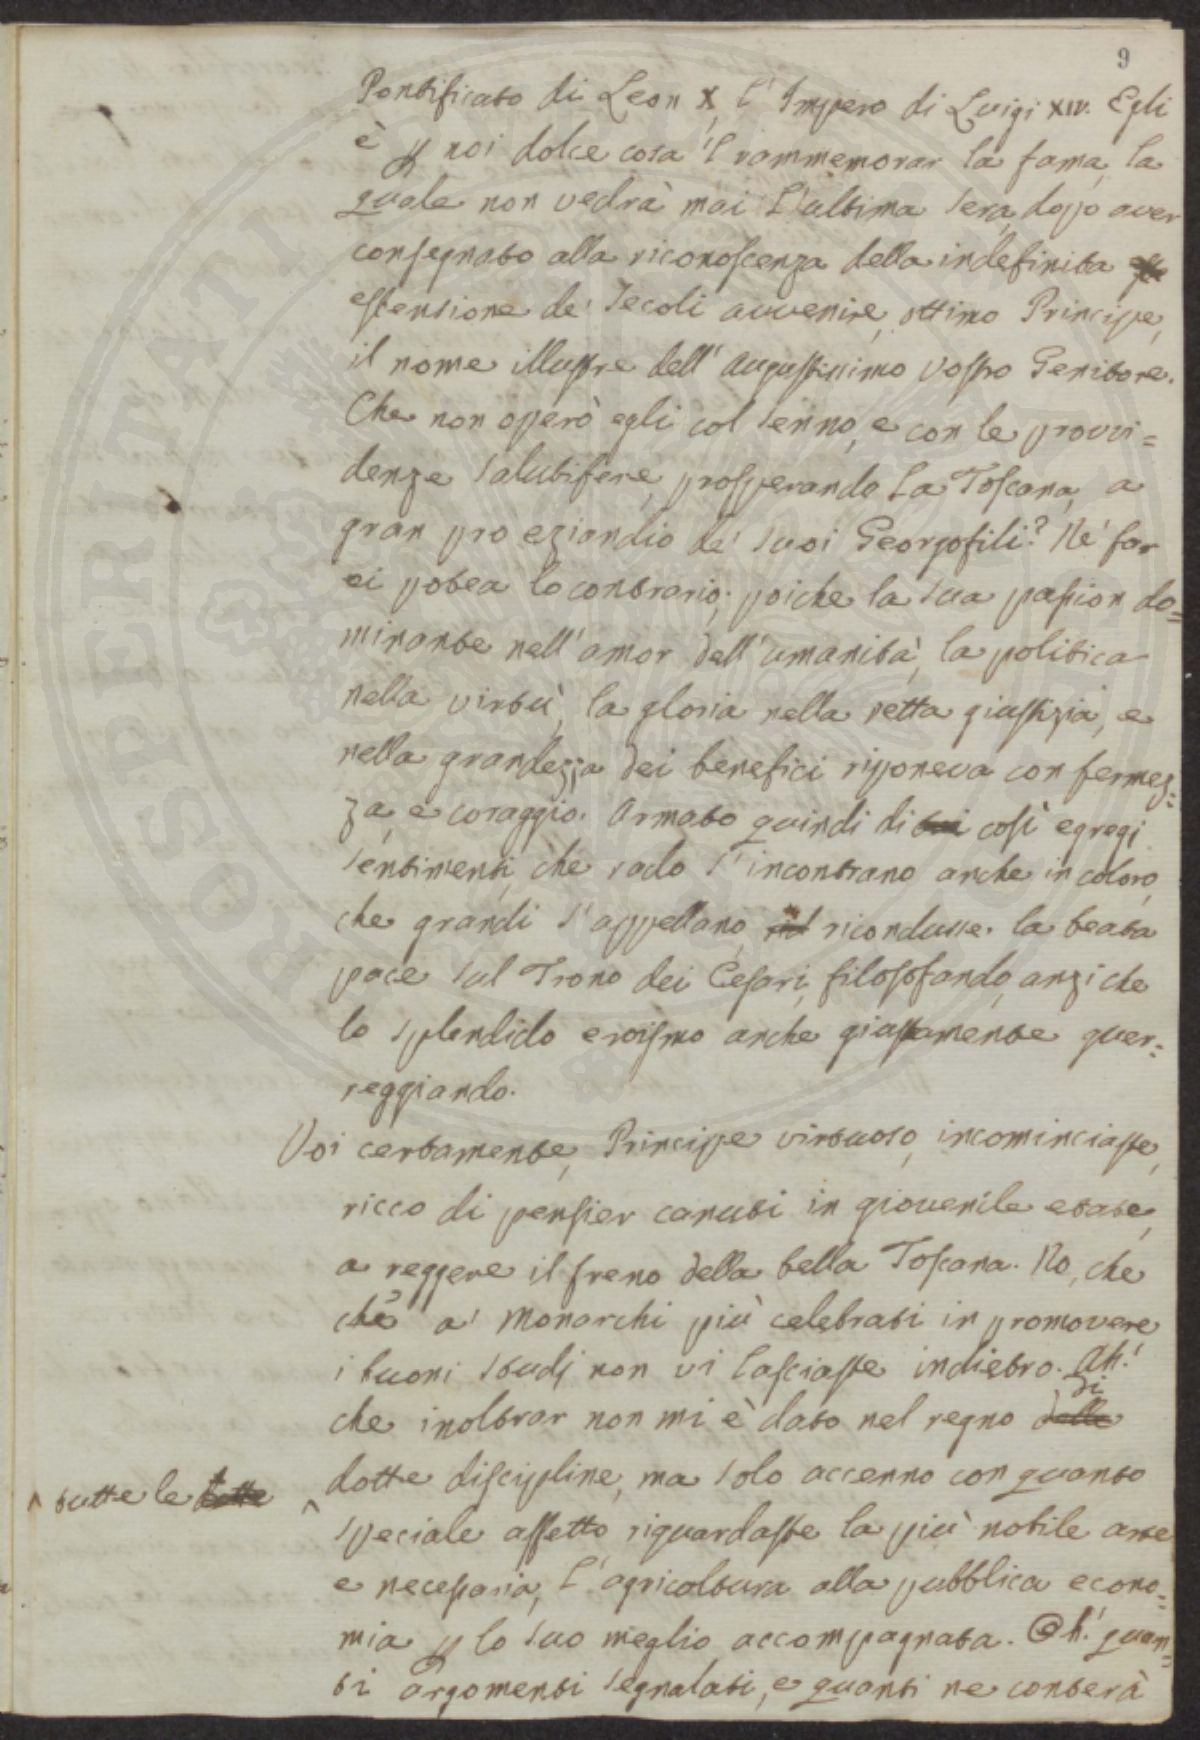 9
Pontificato di Leon X, l'Impero di Luigi XIV. Egli
è p noi dolce cosa 'l rammemorar la fama, la
quale non vedrà mai l'ultima sera, dopo aver
consegnato alla riconoscenza della indefinita
estensione de' secoli avvenire, ottimo Principe,
il nome illustre dell'Augustissimo Vostro Genitore.
Che non operò egli col senno, e con le provvi=
denze salutifere, prosperando la Toscana, a
gran pro eziandio de' suoi Georgofili? Nè far
ei potea lo contrario; poiche la sua passion do=
minante nell'amor dell'umanità, la politica
nella virtù, la gloria nella retta giustizia, e
nella grandezza dei benefici riponeva con fermez=
za, e coraggio. Armato quindi di tai così egregi
sentimenti, che rado s'incontrano anche in coloro,
che grandi s'appellano, rid ricondusse la beata
pace sul Trono dei Cesari, filosofando, anzi che
lo splendido eroismo anche giustamente guer=
reggiando.
Voi certamente, Principe virtuoso, incominciaste,
ricco di pensier canuti in giovenile etate,
a reggere il freno della bella Toscana. No, che
chè a' Monarchi più celebrati in promovere
i buoni studj non vi lasciaste indietro. Ah!
che inoltrar non mi è dato nel regno delle di
^ tutte le dotte ^
dotte discipline, ma solo accenno con quanto
speciale affetto riguardaste la più nobile arte
e necessaria, l'agricoltura alla pubblica econo=
mia p lo suo meglio accompagnata. Oh! quan=
ti argomenti segnalati, e quanti ne conterà